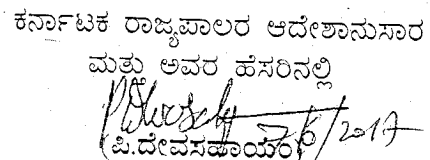 ಕರ್ನಾಟಕ ರಾಜ್ಯಪಾಲರ ಆದೇಶಾನುಸಾರ
ಮತ್ತು ಅವರ ಹೆಸರಿನಲ್ಲಿ
ಪಿ.ದೇವಸಹಾಯಂ